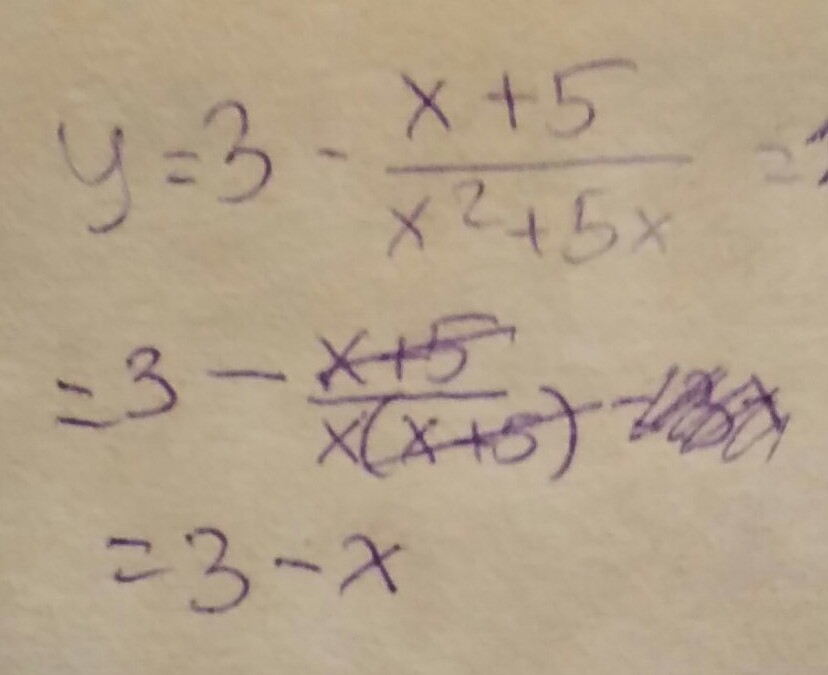 y = 3 - \frac{x+5}{x^2+5x} =
= 3 - \frac{x+5}{x(x+5)}
= 3 - x